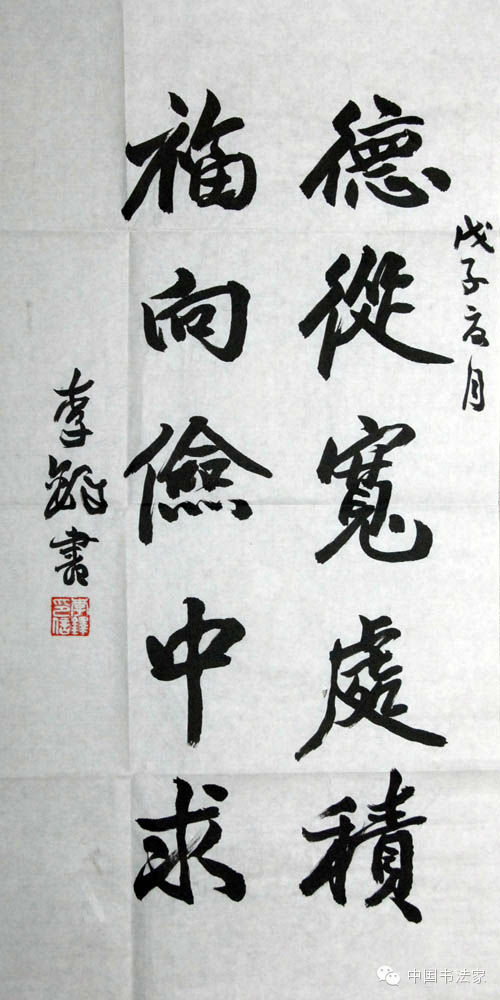 戊子夏月
德從寬處積
福向儉中求
李鐸書
李鐸印信
中国书法家